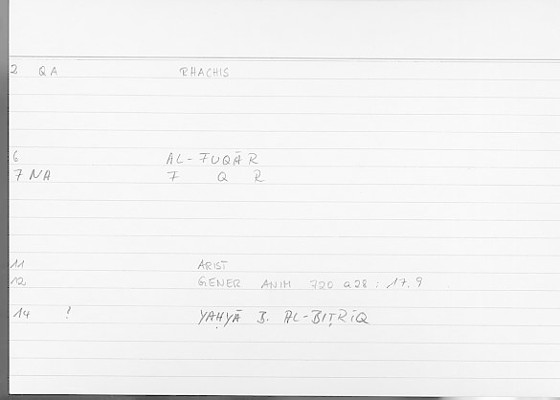 2 QA RHACHIS
6 AL-FUQĀR
7 NA F Q R
11 ARIST
12 GENER ANIM 720 a28 : 17.9
14 ? YAḤYĀ B. AL-BIṬRĪQ